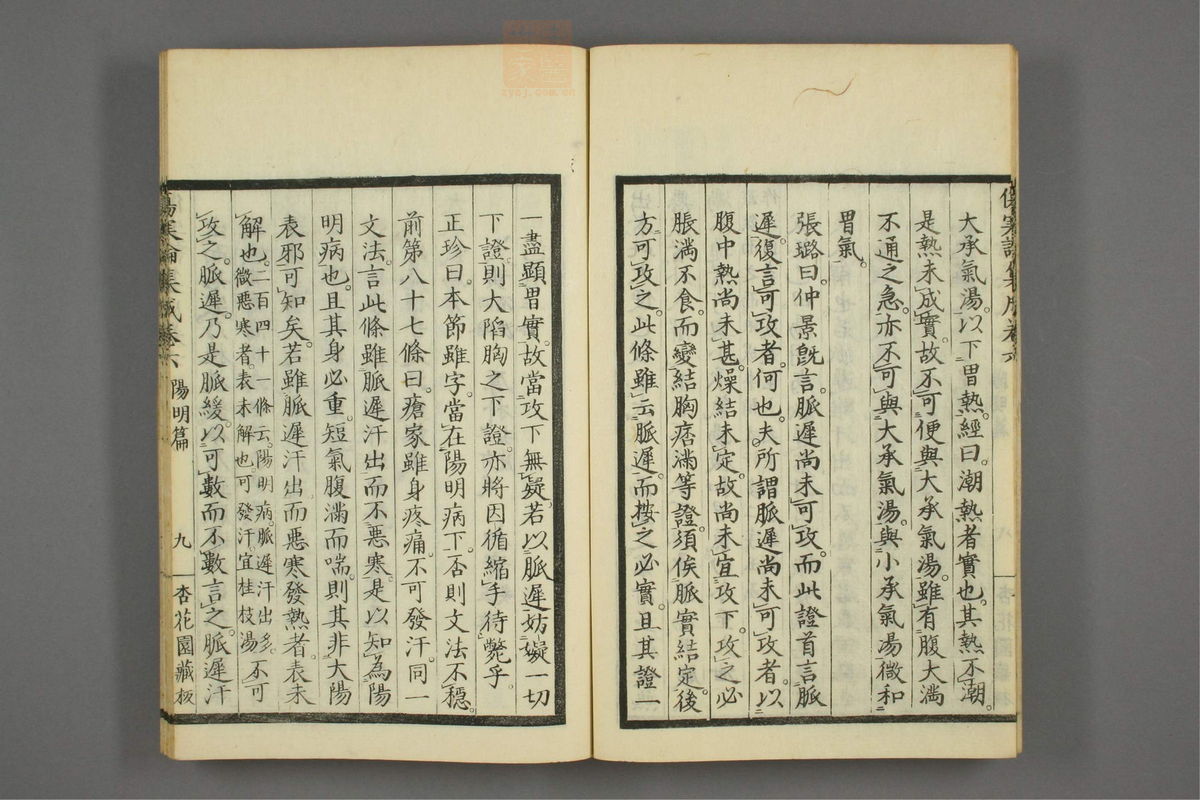 傷寒論集成卷六
大承氣湯。以下胃熱。經曰。潮熱者實也。其熱不潮。
是熱未成實。故不可便與大承氣湯。雖有腹大滿
不通之急。亦不可與大承氣湯。與小承氣湯微和
胃氣。
張璐曰。仲景旣言。脈遲尚未可攻。而此證首言脈
遲。復言可攻者。何也。夫所謂脈遲尚未可攻者。以
腹中熱尚未甚。燥結未定。故尚未宜攻下。攻之必
脹滿不食。而變結胸痞滿等證。須俟脈實結定後
方可攻之。此條雖云脈遲。而按之必實。且其證一
一盡顯胃實。故當攻下無疑。若以脈遲妨礙一切
下證。則大陷胸之下證。亦將因循縮手待斃乎。
正珍曰。本節雖字。當在陽明病下。否則文法不穩。
前第八十七條曰。瘡家雖身疼痛。不可發汗。同一
文法。言此條雖脈遲汗出而不惡寒。是以知為陽
明病也。且其身必重。短氣腹滿而喘。則其非大陽
表邪可知矣。若雖脈遲汗出而惡寒發熱者。表未
解也。二百四十一條云。陽明病。脈遲汗出多。微惡寒者。表未解也。可發汗。宜桂枝湯。不可
攻之。脈遲。乃是脈緩。以可數而不數言之。脈遲汗
傷寒論集成卷六 陽明篇 九 杏花園藏板
zycj.com.cn